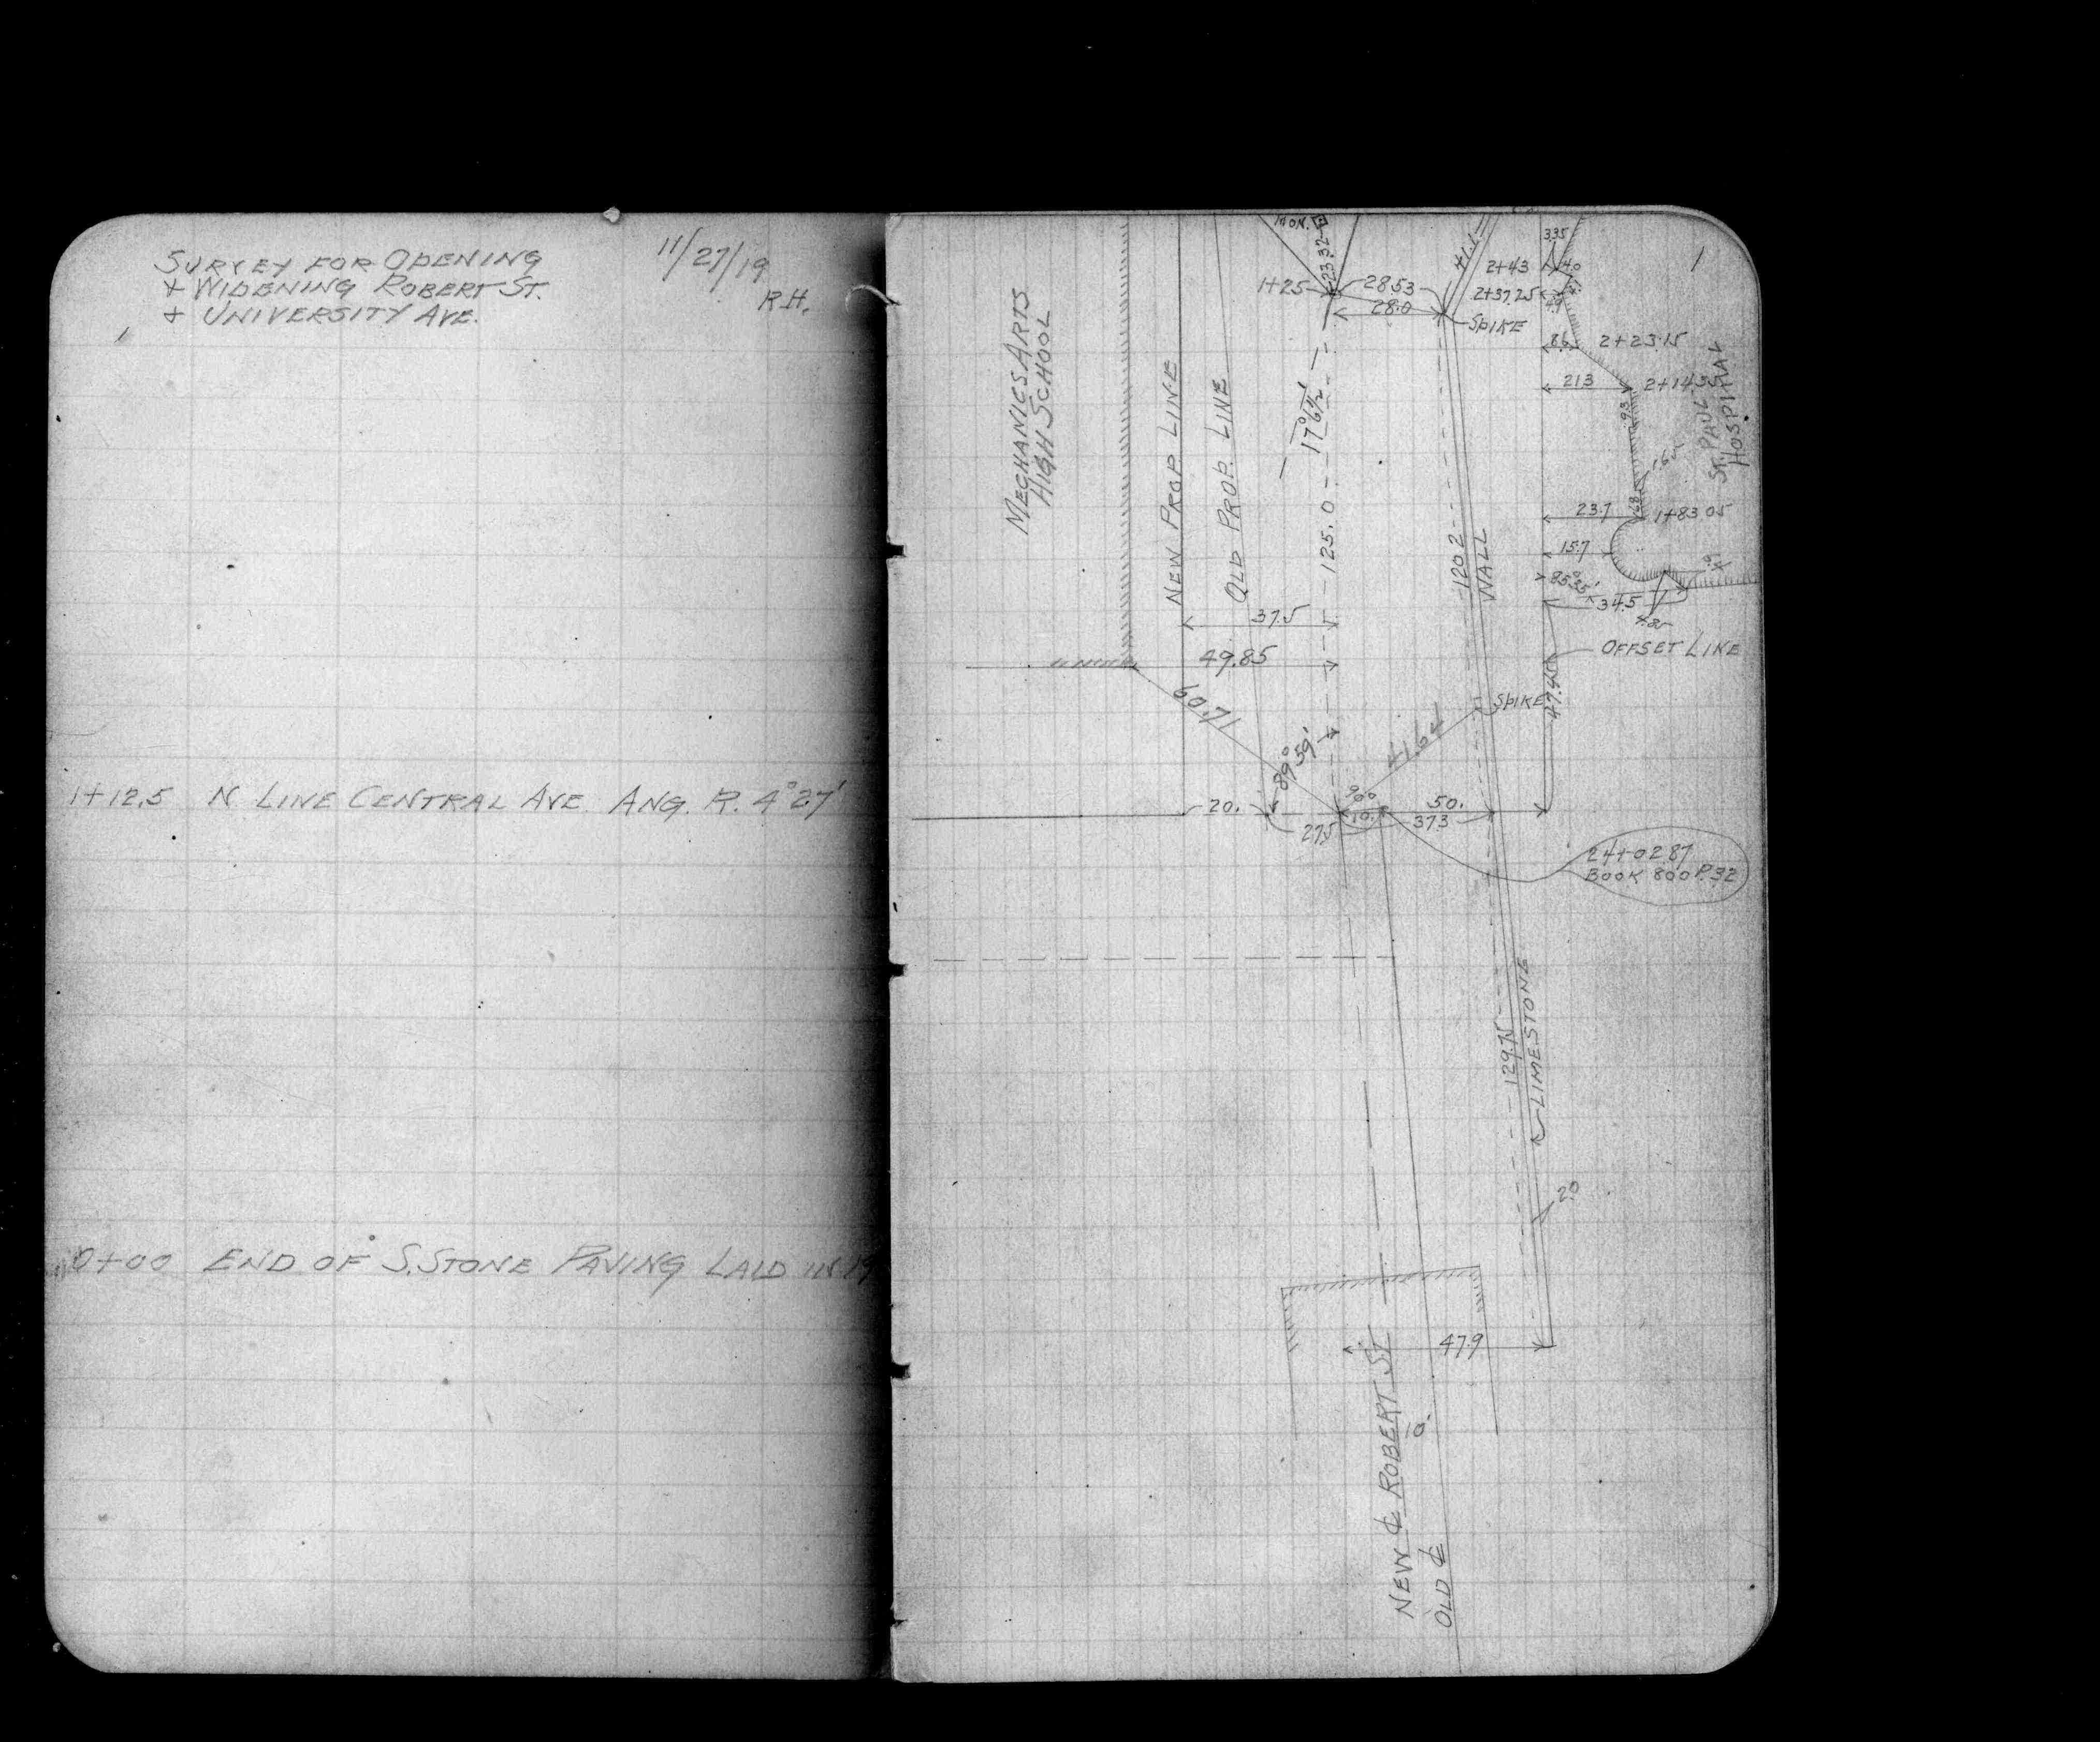 SURVEY FOR OPENING
+ WIDENING ROBERT ST.
+ UNIVERSITY AVE.
11/27/19
R.H.
1+12.5 N. LINE CENTRAL AVE. ANG. R. 4°27'
0+00 END OF S.STONE PAVING LAID IN 19
1
MON.
23.32
1+25
28.53
28.0
SPIKE
4.1
335
2+43
40
2+37.25
4.9
8.6
2+23.15
213
2+14.35
ST. PAUL
HOSPITAL
93
165
68
23.7
1+83.05
15.7
85°35'
34.5
4.85
OFFSET LINE
MECHANICS ARTS
HIGH SCHOOL
NEW PROP LINE
OLD PROP. LINE
17°6½'
125.0
120.2
WALL
37.5
49.85
60.71
89°59'
41.64
SPIKE
47.45
20.
27.5
90°
10.
50.
37.3
24+02.87
BOOK 800 P.32
129.75
LIMESTONE
2.0
47.9
10.
NEW ℄ ROBERT ST
OLD ℄